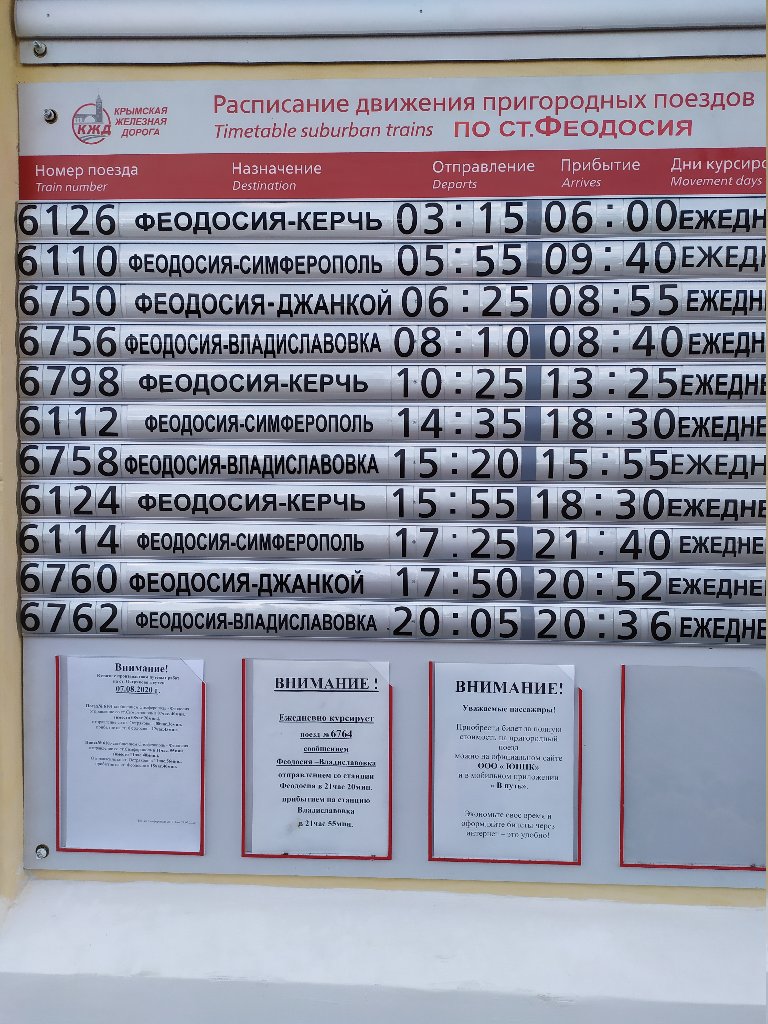 КРЫМСКАЯ
ЖЕЛЕЗНАЯ
ДОРОГА
КЖД
Расписание движения пригородных поездов
Timetable suburban trains ПО СТ.ФЕОДОСИЯ
Номер поезда Назначение Отправление Прибытие Дни курсиро
Train number Destination Departs Arrives Movement days
6126 ФЕОДОСИЯ-КЕРЧЬ 03:15 06:00 ЕЖЕДН
6110 ФЕОДОСИЯ-СИМФЕРОПОЛЬ 05:55 09:40 ЕЖЕДН
6750 ФЕОДОСИЯ-ДЖАНКОЙ 06:25 08:55 ЕЖЕДН
6756 ФЕОДОСИЯ-ВЛАДИСЛАВОВКА 08:10 08:40 ЕЖЕДН
6798 ФЕОДОСИЯ-КЕРЧЬ 10:25 13:25 ЕЖЕДНЕ
6112 ФЕОДОСИЯ-СИМФЕРОПОЛЬ 14:35 18:30 ЕЖЕДНЕ
6758 ФЕОДОСИЯ-ВЛАДИСЛАВОВКА 15:20 15:55 ЕЖЕДН
6124 ФЕОДОСИЯ-КЕРЧЬ 15:55 18:30 ЕЖЕДНЕ
6114 ФЕОДОСИЯ-СИМФЕРОПОЛЬ 17:25 21:40 ЕЖЕДНЕ
6760 ФЕОДОСИЯ-ДЖАНКОЙ 17:50 20:52 ЕЖЕДНЕ
6762 ФЕОДОСИЯ-ВЛАДИСЛАВОВКА 20:05 20:36 ЕЖЕДНЕ
Внимание!
07.08.2020 г.
ВНИМАНИЕ !
Ежедневно курсирует
поезд №6764
сообщением
Феодосия –Владиславовка
отправлением со станции
Феодосия в 21час 20мин.
прибытием на станцию
Владиславовка
в 21час 55мин.
ВНИМАНИЕ!
Уважаемые пассажиры!
Приобрести билет за полную
стоимость на пригородный
поезд
можно на официальном сайте
ООО « ЮППК»
и в мобильном приложении
« В путь».
Экономьте свое время и
оформляйте билеты через
интернет – это удобно!